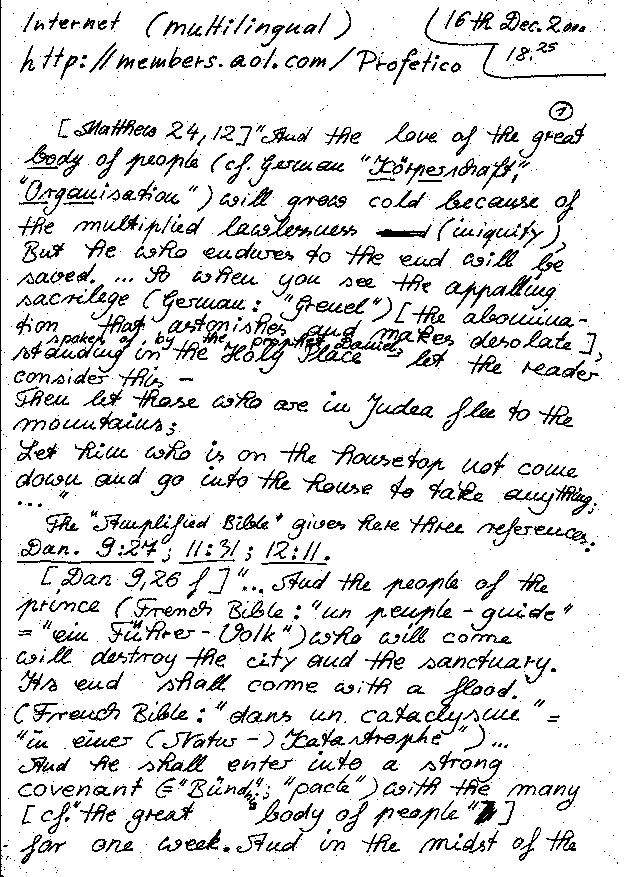 Internet (multilingual)
16th Dec. 2000
http://members.aol.com/Profetico
18.25
1
[Matthew 24,12] "And the love of the great
body of people (cf. German "Körperschaft",
"Organisation") will grow cold because of
the multiplied lawlessness (iniquity),
But he who endures to the end will be
saved. ... So when you see the appalling
sacrilege (German: "Greuel") [the abomina-
tion that astonishes and makes desolate],
spoken of by the prophet Daniel,
standing in the Holy Place – let the reader
consider this –
Then let those who are in Judea flee to the
mountains;
Let him who is on the housetop not come
down and go into the house to take anything;
..."
The "Amplified Bible" gives here three references:
Dan. 9:27; 11:31; 12:11.
[Dan 9,26 f] "... And the people of the
prince (French Bible: "un peuple-guide"
= "ein Führer-Volk") who will come
will destroy the city and the sanctuary.
Its end shall come with a flood.
(French Bible: "dans un cataclysme" =
"in einer (Natur-) Katastrophe")...
And he shall enter into a strong
covenant (="Bündnis"; "pacte") with the many
[cf. "the great body of people"]
for one week. And in the midst of the